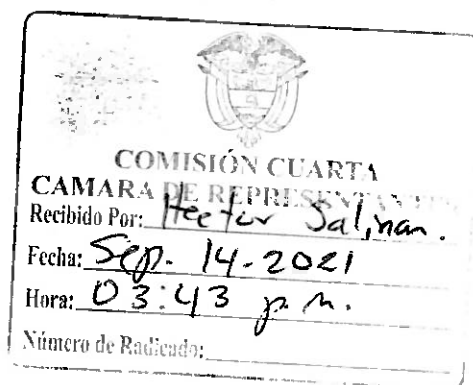 COMISIÓN CUARTA
CAMARA DE REPRESENTANTES
Recibido Por: Hector Salinas.
Fecha: Sep. 14-2021
Hora: 03:43 p.m.
Número de Radicado: